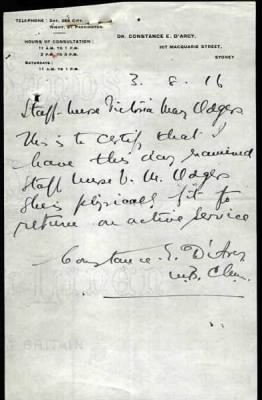 TELEPHONE: DAY, 255 CITY.
NIGHT, 57 PADDINGTON.
HOURS OF CONSULTATION:
11 A.M. TO 1 P.M.
2 P.M. TO 3 P.M.
SATURDAYS:
11 A.M. TO 1 P.M.
DR. CONSTANCE E. D'ARCY.
107 MACQUARIE STREET,
SYDNEY
3. 8. 16
Staff-Nurse Victoria May Odgers
This is to certify that I
have this day examined
Staff Nurse V. M. Odgers
She is physically fit to
return on active service
Constance E. D'Arcy
M.B. Ch.M.